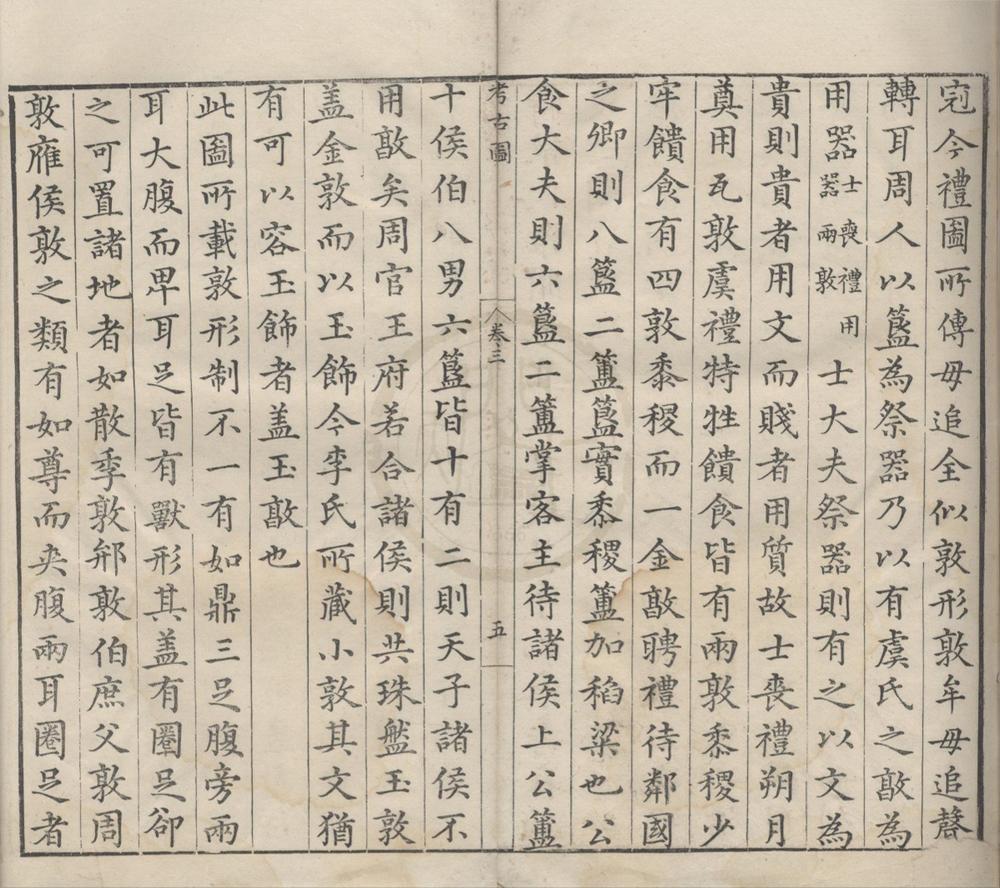 寇今禮圖所傳毋追全似敦形敦牟毋追聲
轉耳周人以簋為祭器乃以有虞氏之敦為
用器士喪禮用器兩敦士大夫祭器則有之以文為
貴則貴者用文而賤者用質故士喪禮朔月
奠用瓦敦虞禮特牲饋食皆有兩敦黍稷少
牢饋食有四敦黍稷而一金敦聘禮待鄰國
之卿則八簋二簠簋實黍稷簠加稻粱也公
食大夫則六簋二簠掌客主待諸侯上公簠
考古圖 卷三 五
十侯伯八男六簋皆十有二則天子諸侯不
用敦矣周官王府若合諸侯則共珠盤玉敦
盖金敦而以玉飾今李氏所藏小敦其文猶
有可以容玉飾者盖玉敦也
此圖所載敦形制不一有如鼎三足腹旁兩
耳大腹而卑耳足皆有獸形其盖有圈足卻
之可置諸地者如散季敦邢敦伯庶父敦周
敦雁侯敦之類有如尊而夾腹兩耳圈足者